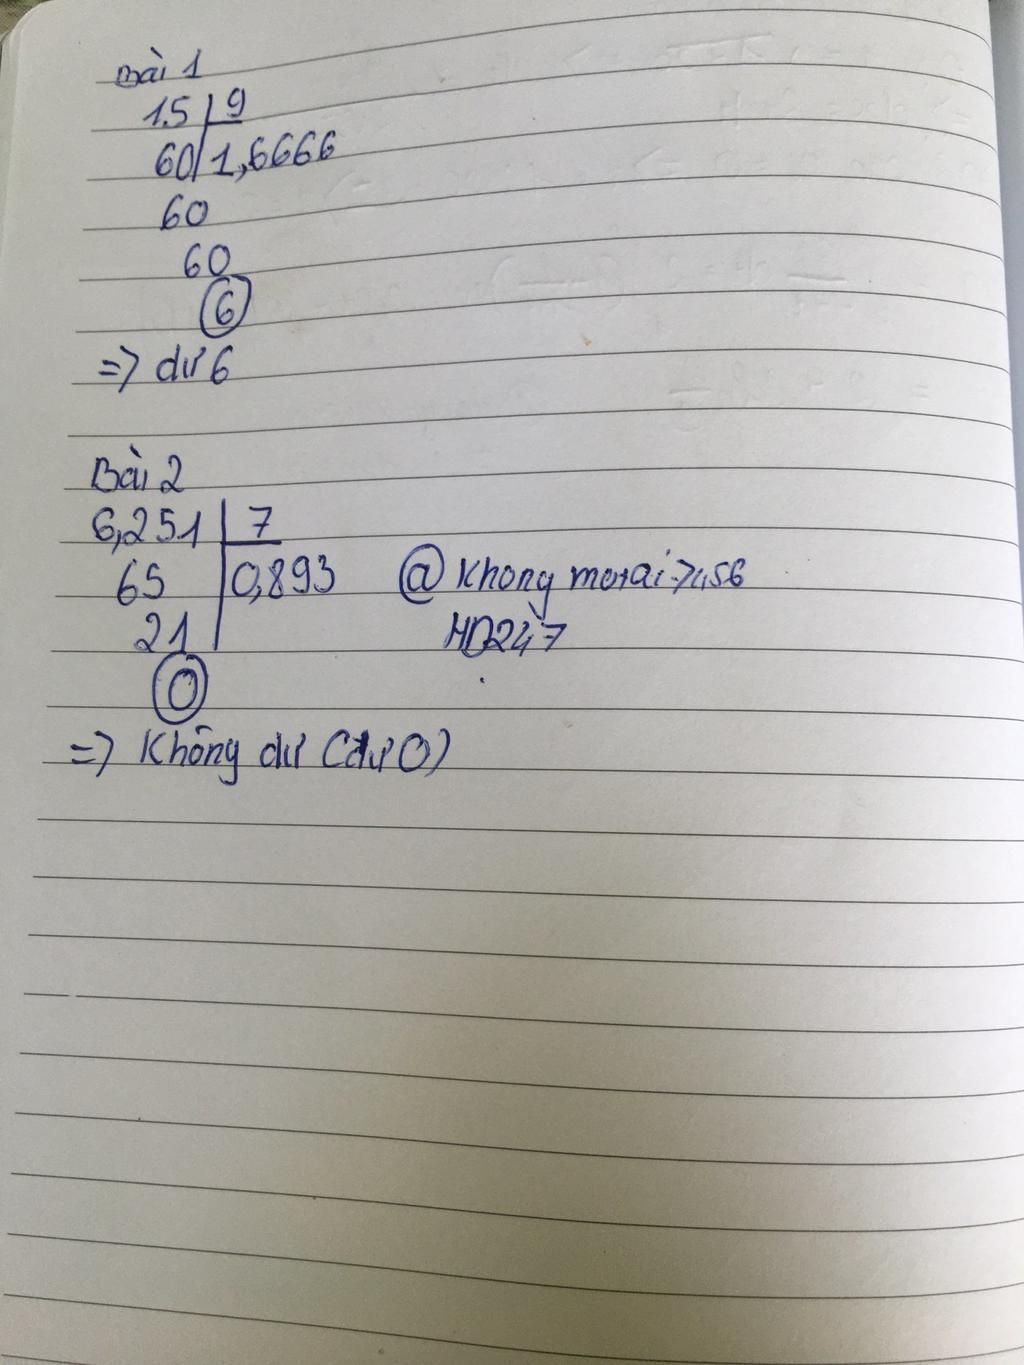 Bài 1
15 | 9
60 | 1,6666
60
60
6
=> dư 6
Bài 2
6,251 | 7
65 | 0,893
21
0
=> Không dư (dư 0)
HD247